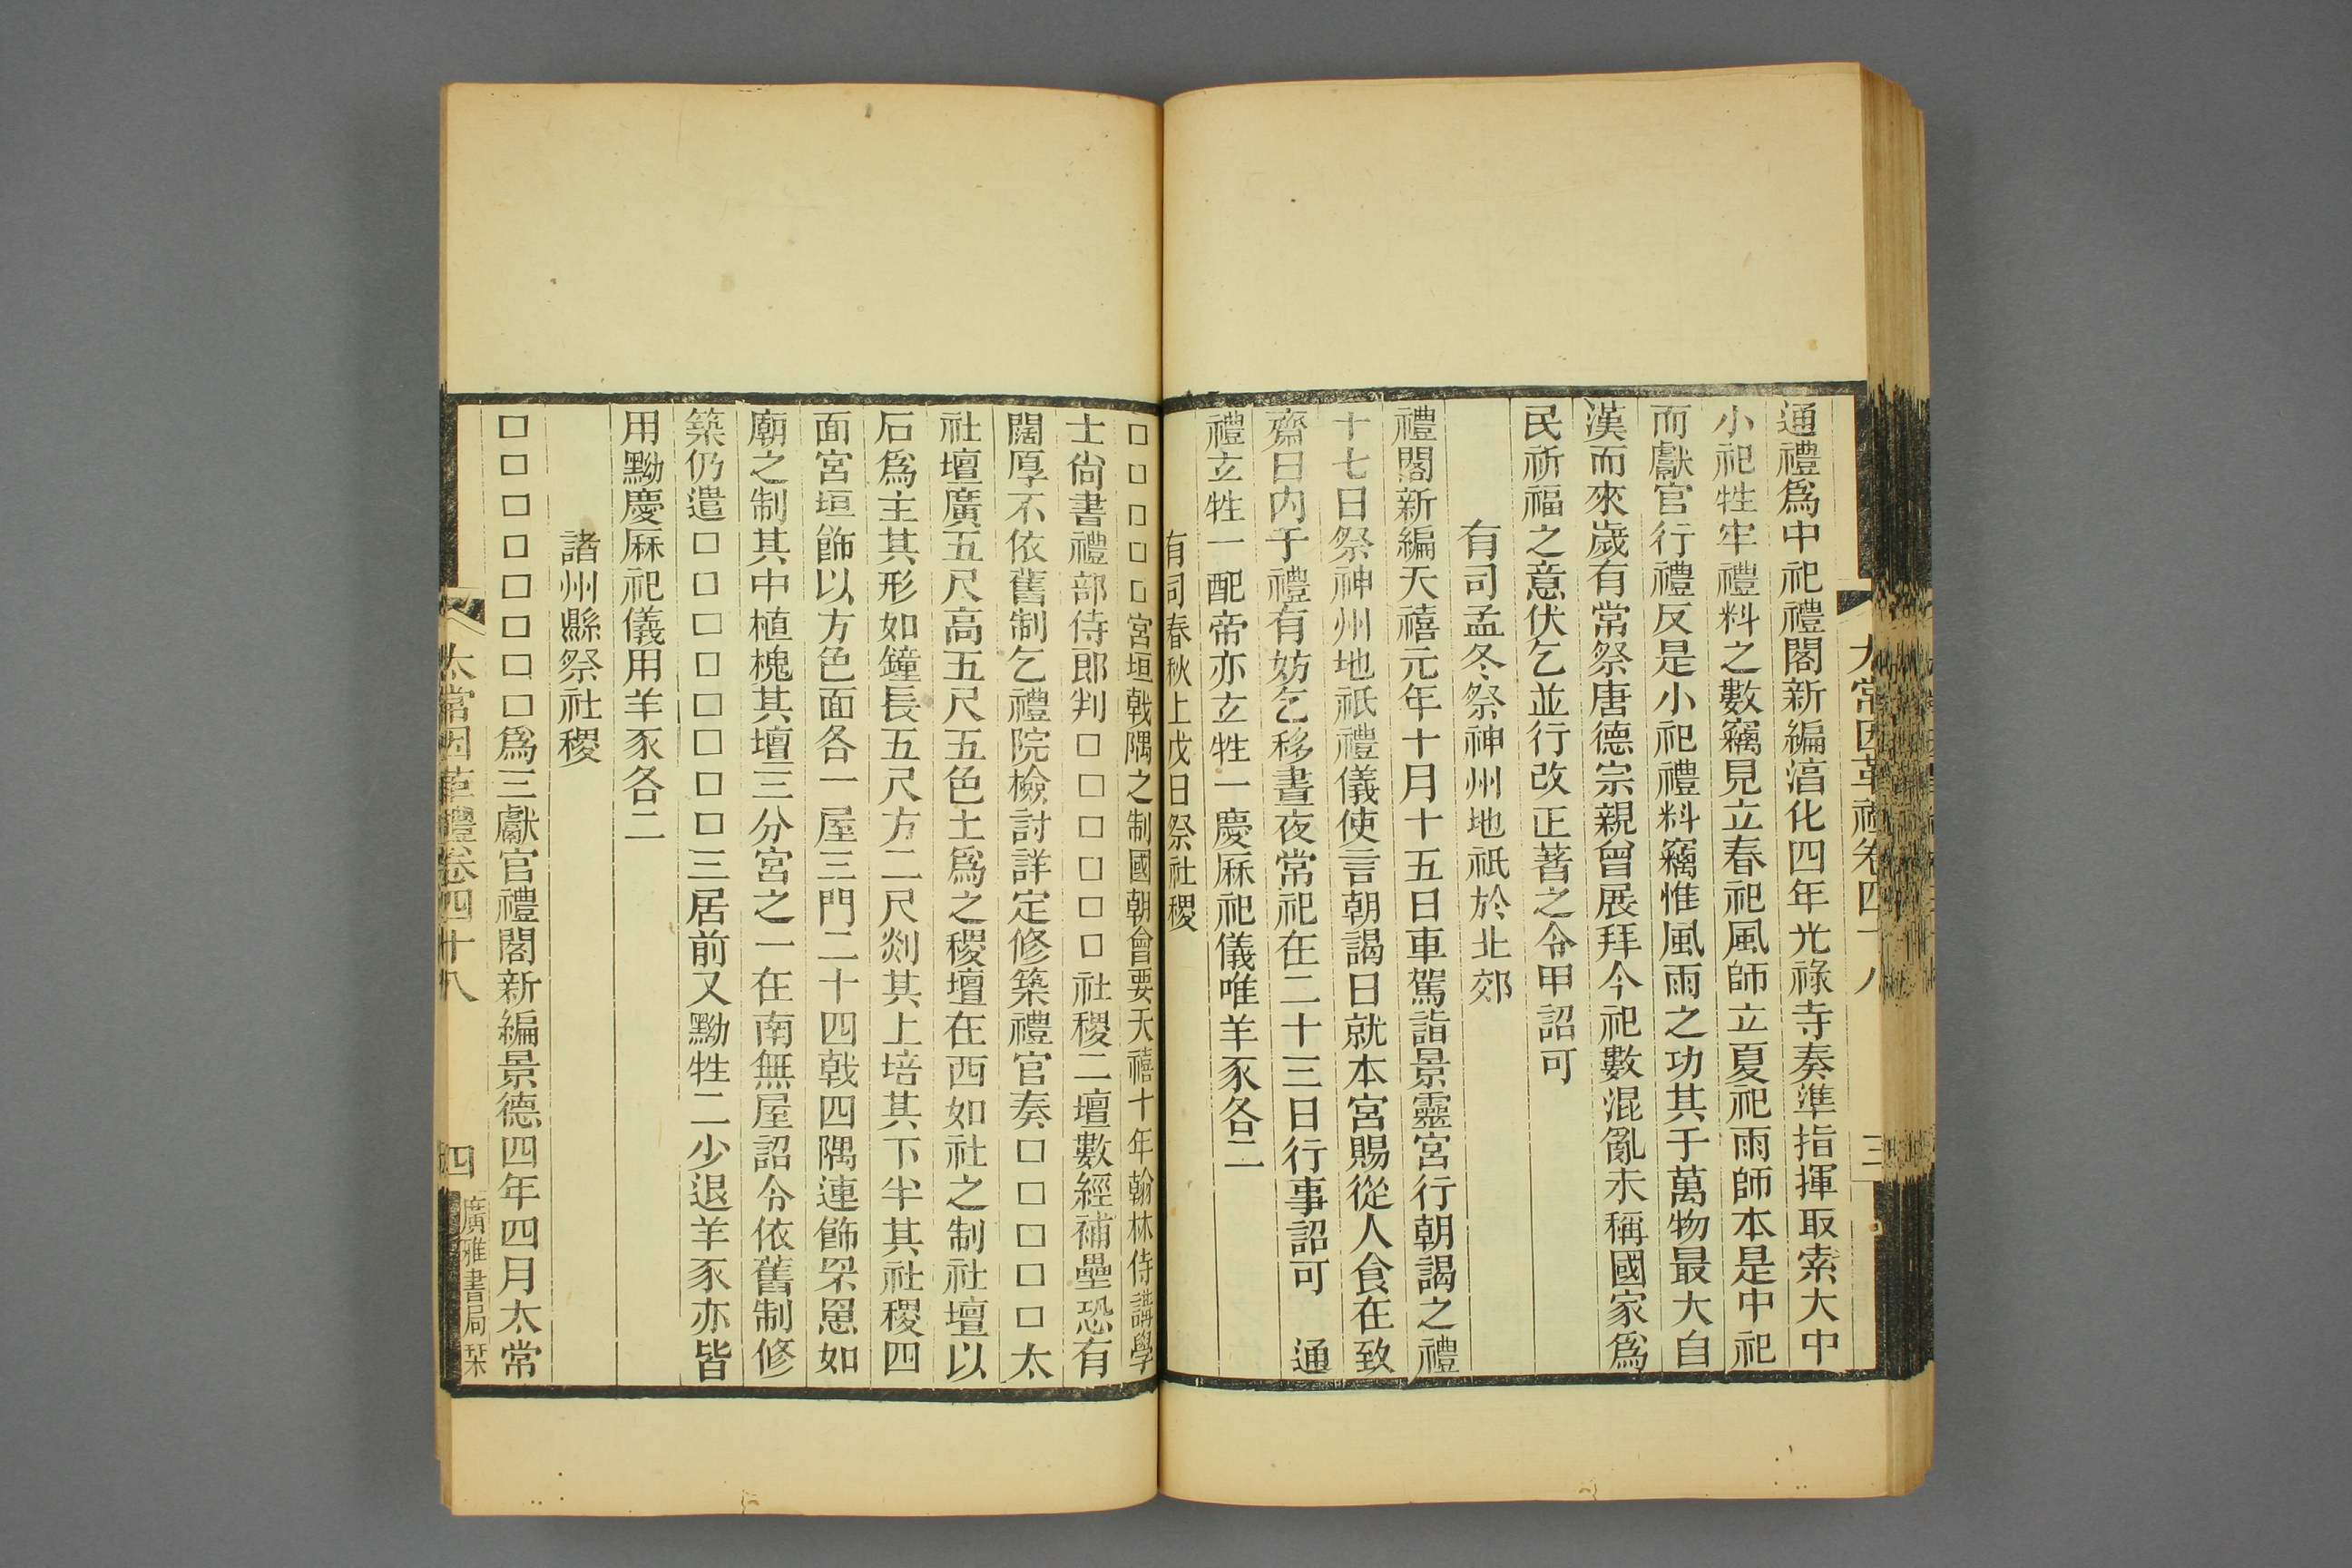 太常因革禮卷四十八
三
通禮爲中祀禮閣新編淳化四年光祿寺奏準指揮取索大中
小祀牲牢禮料之數竊見立春祀風師立夏祀雨師本是中祀
而獻官行禮反是小祀禮料竊惟風雨之功其于萬物最大自
漢而來歲有常祭唐德宗親曾展拜今祀數混亂未稱國家爲
民祈福之意伏乞並行改正著之令甲詔可
有司孟冬祭神州地祇於北郊
禮閣新編天禧元年十月十五日車駕詣景靈宮行朝謁之禮
十七日祭神州地祇禮儀使言朝謁日就本宮賜從人食在致
齋日內于禮有妨乞移晝夜常祀在二十三日行事詔可　通
禮立牲一配帝亦立牲一慶厤祀儀唯羊豕各二
有司春秋上戊日祭社稷
□□□□□宮垣戟隅之制國朝會要天禧十年翰林侍講學
士尙書禮部侍郎判□□□□□□社稷二壇數經補壘恐有
闊厚不依舊制乞禮院檢討詳定修築禮官奏□□□□□太
社壇廣五尺高五尺五色土爲之稷壇在西如社之制社壇以
石爲主其形如鐘長五尺方二尺剡其上培其下半其社稷四
面宮垣飾以方色面各一屋三門二十四戟四隅連飾罘罳如
廟之制其中植槐其壇三分宮之一在南無屋詔令依舊制修
築仍遣□□□□□□□□三居前又黝牲二少退羊豕亦皆
用黝慶厤祀儀用羊豕各二
諸州縣祭社稷
□□□□□□□□爲三獻官禮閣新編景德四年四月太常
太常因革禮卷四十八
四
廣雅書局栞